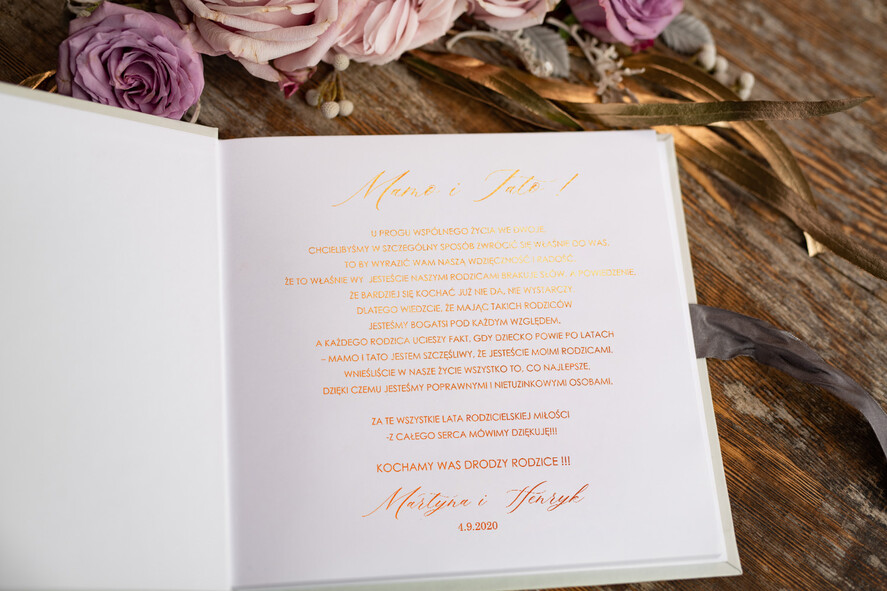 Mamo i Tato !
U PROGU WSPÓLNEGO ŻYCIA WE DWOJE
CHCIELIBYŚMY W SZCZEGÓLNY SPOSÓB ZWRÓCIĆ SIĘ WŁAŚNIE DO WAS,
TO BY WYRAZIĆ WAM NASZĄ WDZIĘCZNOŚĆ I RADOŚĆ,
ŻE TO WŁAŚNIE WY JESTEŚCIE NASZYMI RODZICAMI BRAKUJE SŁÓW, A POWIEDZENIE,
ŻE BARDZIEJ SIĘ KOCHAĆ JUŻ NIE DA, NIE WYSTARCZY.
DLATEGO WIEDZCIE, ŻE MAJĄC TAKICH RODZICÓW
JESTEŚMY BOGATSI POD KAŻDYM WZGLĘDEM,
A KAŻDEGO RODZICA UCIESZY FAKT, GDY DZIECKO POWIE PO LATACH
– MAMO I TATO JESTEM SZCZĘŚLIWY, ŻE JESTEŚCIE MOIMI RODZICAMI.
WNIEŚLIŚCIE W NASZE ŻYCIE WSZYSTKO TO, CO NAJLEPSZE,
DZIĘKI CZEMU JESTEŚMY POPRAWNYMI I NIETUZINKOWYMI OSOBAMI.
ZA TE WSZYSTKIE LATA RODZICIELSKIEJ MIŁOŚCI
-Z CAŁEGO SERCA MÓWIMY DZIĘKUJĘ!!!
KOCHAMY WAS DRODZY RODZICE !!!
Martyna i Henryk
4.9.2020